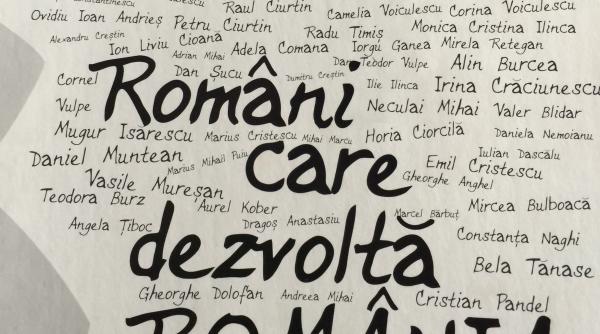 Raul Ciurtin
Camelia Voiculescu Corina Voiculescu
Ovidiu Ioan Andrieș Petru Ciurtin
Radu Timiș Monica Cristina Ilinca
Alexandru Creștin Ion Liviu Cioană
Adrian Mihai Adela Comana Iorgu Ganea Mirela Retegan
Dan Șucu Dumitru Creștin Teodor Vulpe Alin Burcea
Cornel Vulpe
Români
Ilie Ilinca Irina Crăciunescu
Neculai Mihai Valer Blidar
Mugur Isărescu Marius Cristescu Mihai Marcu Horia Ciorcilă Daniela Nemoianu
Daniel Muntean Marius Mihail Puiu
care
Iulian Dascălu
Emil Cristescu
Gheorghe Anghel
Vasile Mureșan
Teodora Burz Aurel Kober
Mircea Bulboacă
Angela Țiboc Dragoș Anastasiu Marcel Bărbuț
dezvoltă
Constanța Naghi
Bela Tănase
Gheorghe Dolofan Andreea Mihai Cristian Pandel